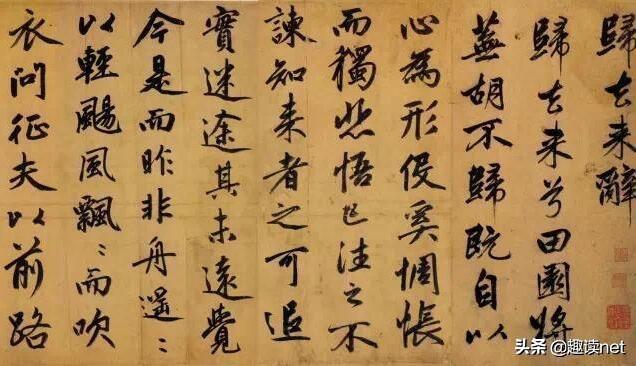 歸去来辭
歸去来兮田園將
蕪胡不歸既自以
心為形役奚惆悵
而獨悲悟已往之不
諫知来者之可追
實迷途其未遠覺
今是而昨非舟遥〻
以輕颺風飄〻而吹
衣問征夫以前路
头条 @趣读net